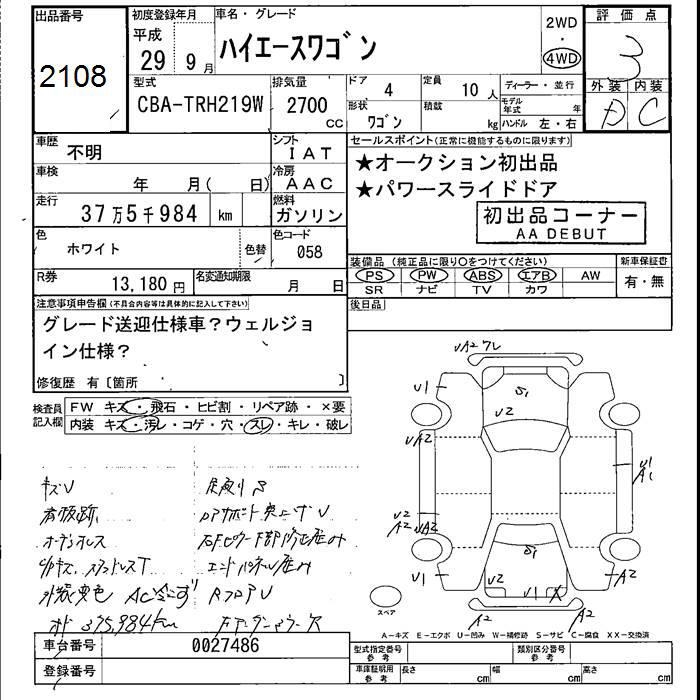 出品番号
2108
初度登録年月
平成
29 9月
車名・グレード
ハイエースワゴン
2WD
・
4WD
評価点
3
外装 内装
D C
型式
CBA-TRH219W
排気量
2700 CC
ドア
4
定員
10 人
形状
ワゴン
積載
kg
ディーラー・並行
モデル年式 年
ハンドル 左・右
車歴
不明
シフト
IAT
車検
年 月( 日)
冷房
AAC
走行
37万5千984 km
燃料
ガソリン
色
ホワイト
色替
色コード
058
R券
13,180円
名変通知期限
月 日
セールスポイント(正常に機能するものに限ります)
★オークション初出品
★パワースライドドア
初出品コーナー
AA DEBUT
装備品(純正品に限り○をつけてください)
PS PW ABS エアB AW
SR ナビ TV カワ
新車保証書
有・無
後日品
注意事項申告欄(不具合内容等は具体的に記入して下さい)
グレード送迎仕様車?ウェルジョ
イン仕様?
修復歴 有〔箇所 〕
検査員
記入欄
FW キズ・飛石・ヒビ割・リペア跡・×要
内装 キズ・汚レ・コゲ・穴・スレ・キレ・破レ
キズU
看板跡
外装変色
375,984km
UA2
U1
S1
U2
UA2
U1
A1
U2
A2 UA2
S1
U1
U2
U1 X
A2
A2
A2
スペア
A-キズ E-エクボ U-凹み W-補修跡 S-サビ C-腐食 XX-交換済
車台番号
0027486
登録番号
型式指定番号
参考
類別区分番号
参考
車庫証明用
参考
長さ cm
幅 cm
高さ cm